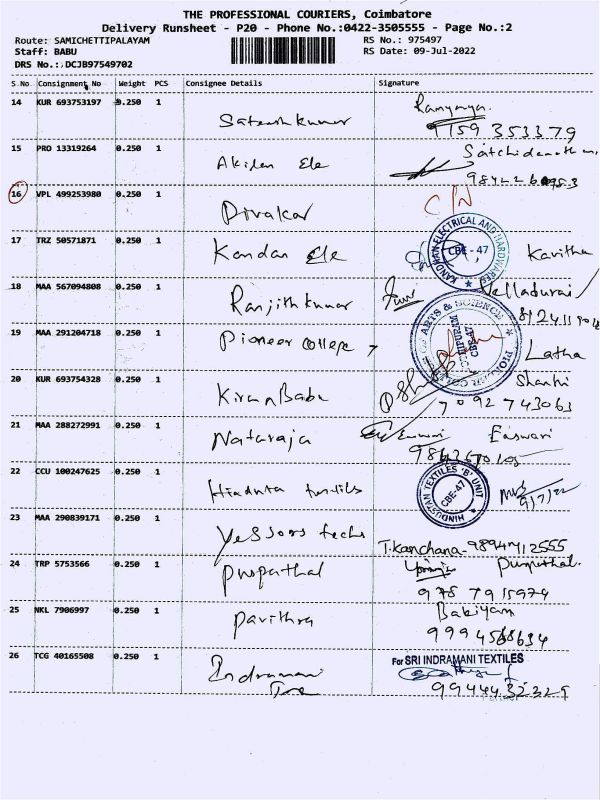 THE PROFESSIONAL COURIERS, Coimbatore
Delivery Runsheet - P20 - Phone No.:0422-3505555 - Page No.:2
Route: SAMICHETTIPALAYAM RS No.: 975497
Staff: BABU RS Date: 09-Jul-2022
DRS No.:.DCJB97549702
S No Consignment No Weight PCS Consignee Details Signature
14 KUR 693753197 0.250 1 Sateesh kumar Ramyaya.
91159 353379
15 PRO 13319264 0.250 1 Akilan Ele
16 VPL 499253980 0.250 1 Divakar C/N
17 TRZ 50571871 0.250 1 Kandan Ele KANDHAN ELECTRICAL AND HARDWARES CBE - 47 Kavitha
18 MAA 567094808 0.250 1 Ranjith kumar Velladurai
19 MAA 291204718 0.250 1 Pioneer College ARTS & SCIENCE Latha
20 KUR 693754328 0.250 1 Kiran Babu Shanthi
7092743063
21 MAA 288272991 0.250 1 Nataraja Easwari
22 CCU 100247625 0.250 1 textiles HINDUSTAN TEXTILES 'B' UNIT CBE-47 9/7/22
23 MAA 290839171 0.250 1 Yessors techs T.Kanchana-9894712555
24 TRP 5753566 0.250 1 Punithal.
978 7915974
25 NKL 7906997 0.250 1 Pavithra Bakiyam
9994568634
26 TCG 40165508 0.250 1 Indramani For SRI INDRAMANI TEXTILES
Tex 9944432329